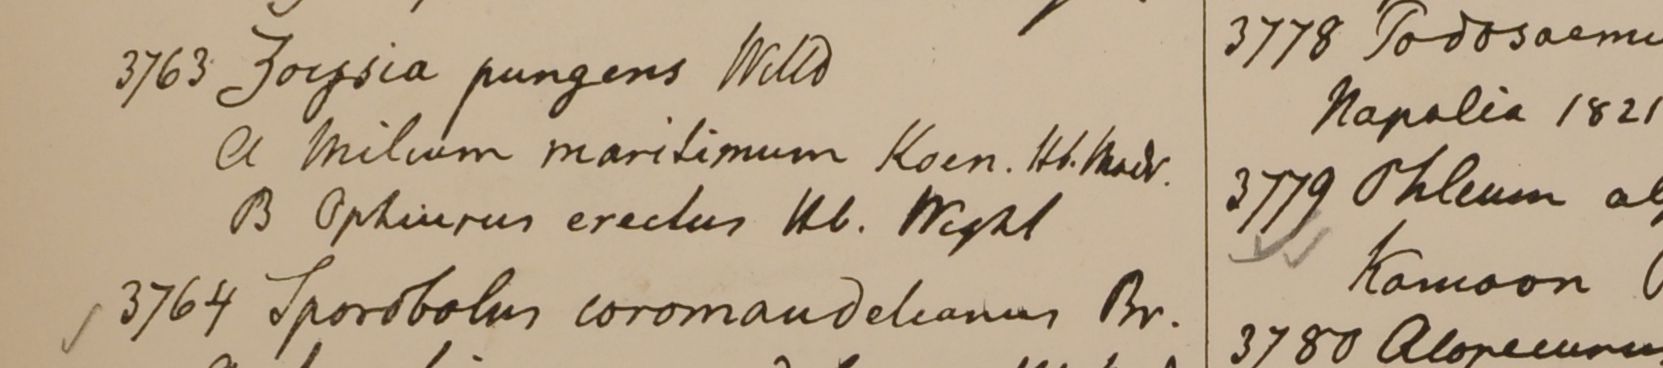 3763 Zoysia pungens Willd
A Milium maritimum Koen. Hb. Madr.
B Ophiurus erectus Hb. Wight
3764 Sporobolus coromandelianus Br.
3778
Napalia 1821
3779 Phleum
Kamoon
3780